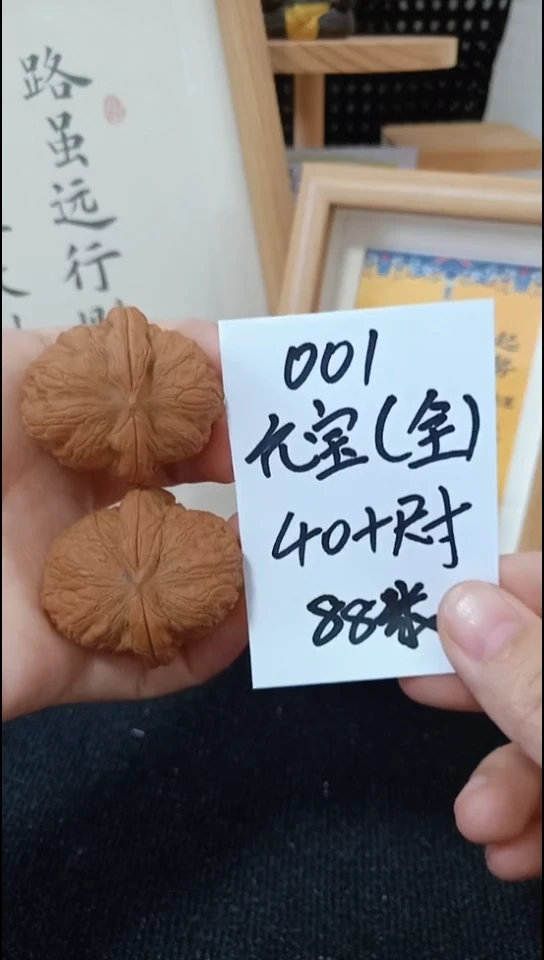 路虽远行
001
元宝(全)
40+尺寸
88张